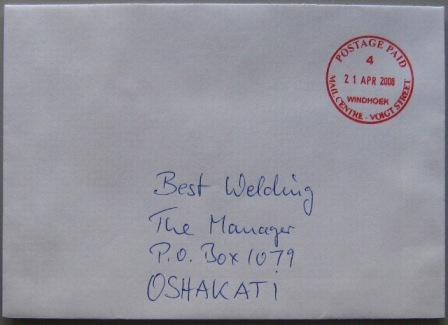 POSTAGE PAID
4
21 APR 2008
WINDHOEK
MAIL CENTRE - VOIGT STREET
Best Welding
The Manager
P.O. Box 1079
OSHAKATI